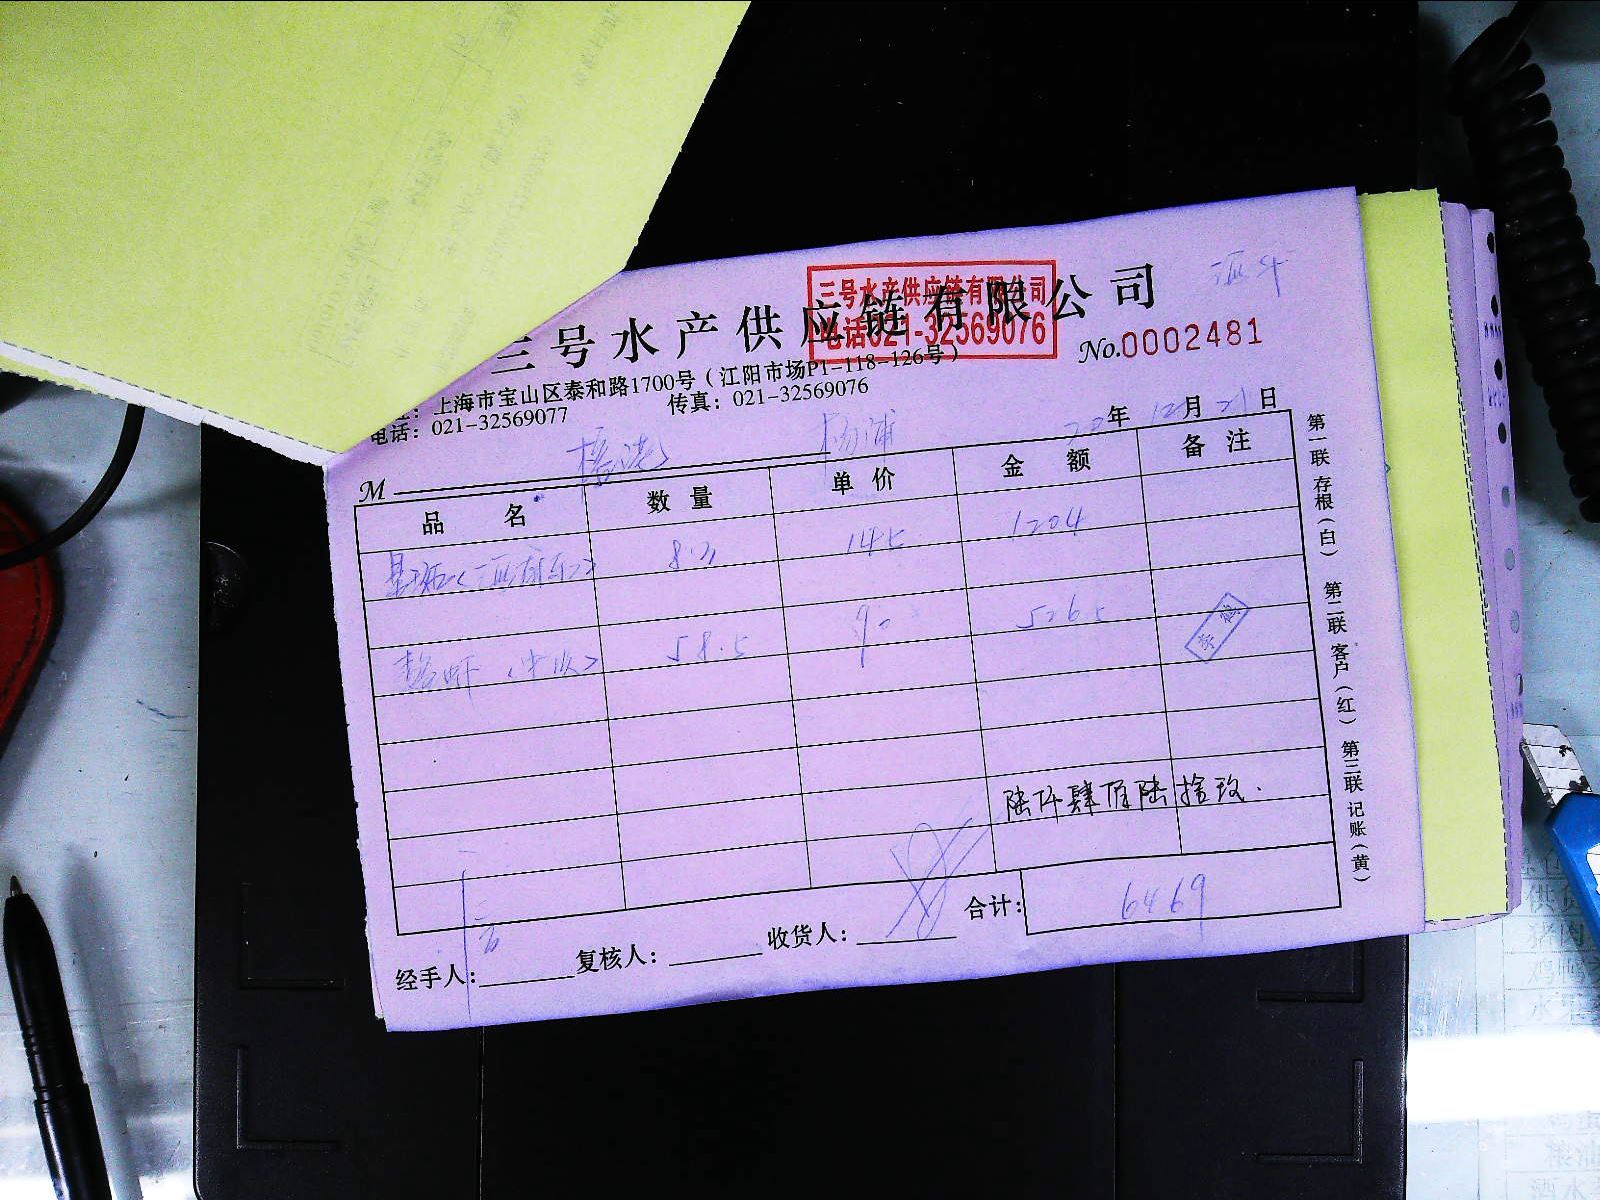 三号水产供应链有限公司
三号水产供应链有限公司
电话021-32569076
No.0002481
上海市宝山区泰和路1700号（江阳市场P1-118-126号）
电话：021-32569077 传真：021-32569076
杨浦
20年12月21日
M
品名 数量 单价 金额 备注
8.3 145 1204
58.5 90 5265
陆仟肆佰陆拾玖
合计：6469
经手人： 复核人： 收货人：
第一联 存根（白） 第二联 客户（红） 第三联 记账（黄）